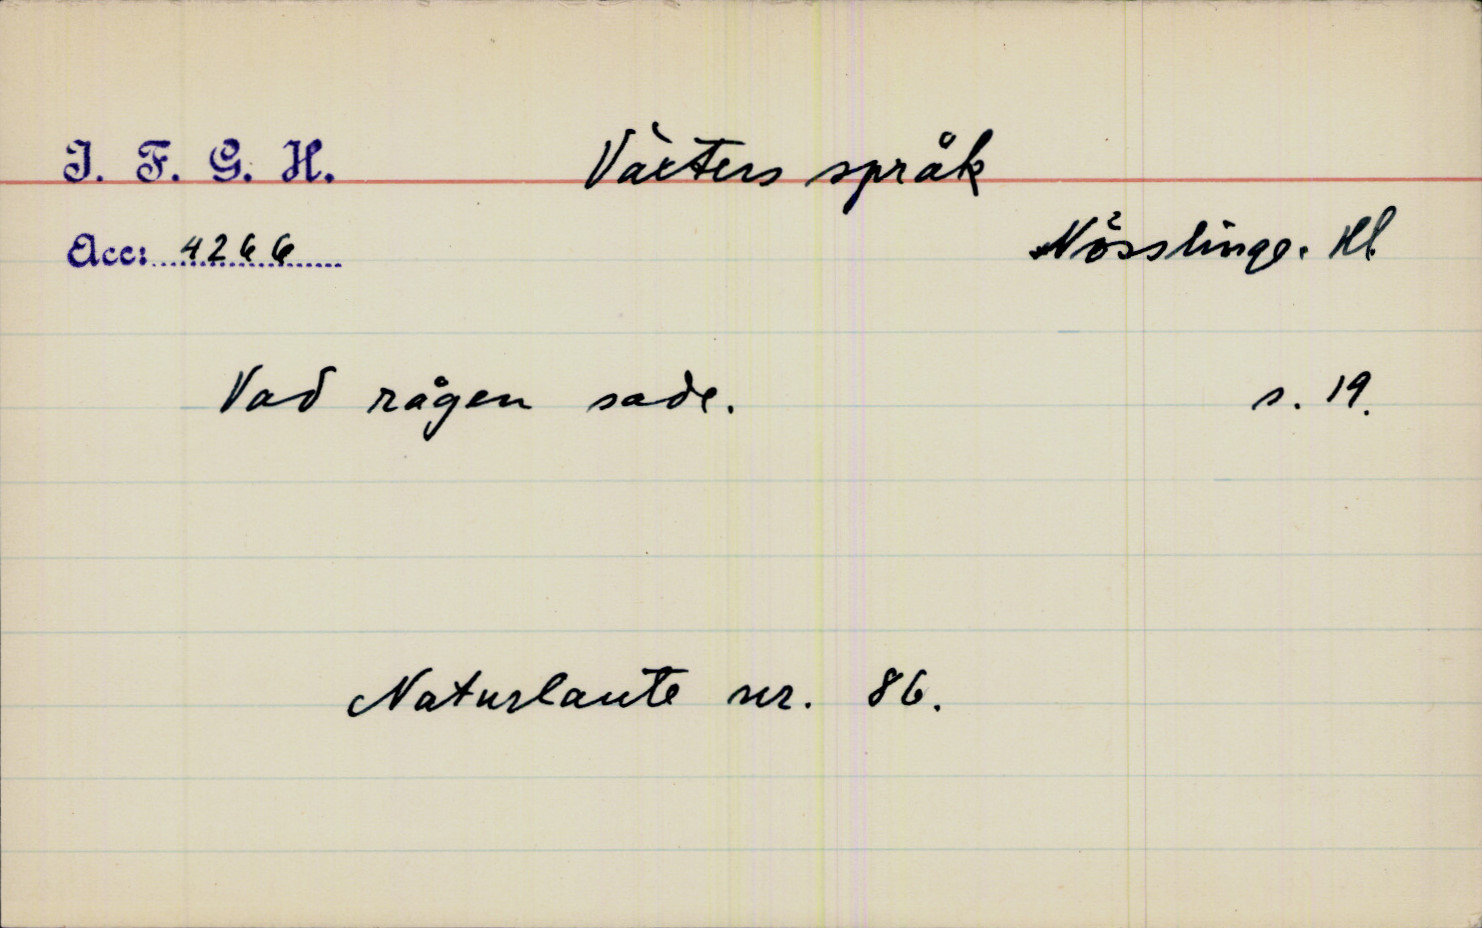 I. F. G. H. Växters språk
Acc: 4266 Nösslinge. Hl.
Vad rågen sade. s. 19.
Naturlaute nr. 86.